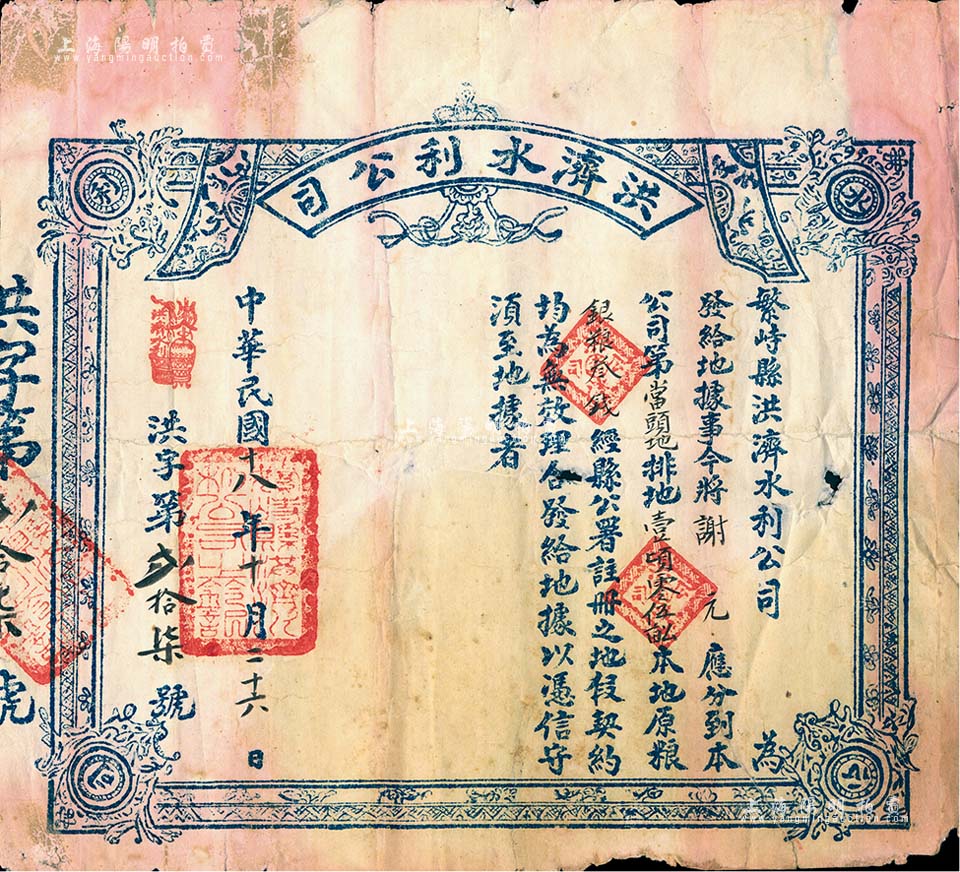 上海陽明拍賣
www.yangmingauction.com
洪濟水利公司
繁峙縣洪濟水利公司 為
發給地據事今將謝 元 應分到本
公司第當頭地排地壹頃零伍畝本地原粮
銀粮叁錢經縣公署註冊之地叚契約
均為無效理合發給地據以憑信守
須至地據者
中華民國十八年十月二十六日
洪字第貳拾柒號
洪字第 拾柒號
水
利
公
司
上海陽明拍賣
上海陽明拍賣
www.yangmingauction.com